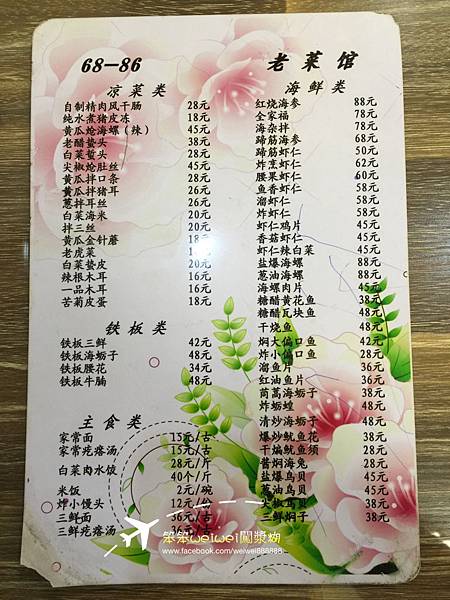 68—86
老菜馆
凉菜类
自制精肉风干肠 28元
纯水煮猪皮冻 18元
黄瓜炝海螺（辣） 45元
老醋蛰头 38元
白菜蜇头 28元
尖椒炝肚丝 45元
黄瓜拌口条 28元
黄瓜拌猪耳 26元
葱拌耳丝 26元
白菜海米 20元
拌三丝 20元
黄瓜金针蘑 18元
老虎菜
白菜蛰皮 20元
辣根木耳 16元
一品木耳 16元
苦菊皮蛋 18元
铁板类
铁板三鲜 42元
铁板海蛎子 48元
铁板腰花 34元
铁板牛腩 48元
主食类
家常面 15元/古
家常疙瘩汤 15元/古
白菜肉水饺 28元/斤
40元/斤
米饭 2元/碗
炸小馒头 12元/份
三鲜面 36元/古
三鲜疙瘩汤 36元/古
海鲜类
红烧海参 88元
全家福 78元
海杂拌 78元
蹄筋海参 68元
蹄筋虾仁 50元
炸烹虾仁 62元
腰果虾仁 60元
鱼香虾仁 58元
溜虾仁 58元
炸虾仁 58元
虾仁鸡片 45元
香菇虾仁 45元
虾仁辣白菜 45元
盐爆海螺 88元
葱油海螺 88元
海肉片 45元
糖醋黄花鱼 38元
糖醋瓦块鱼 48元
干烧鱼 48元
焖大偏口鱼 42元
炸小偏口鱼 28元
溜鱼片 36元
红油鱼片 36元
茼蒿海蛎子 38元
炸蛎蝗 48元
清炒海蛎子 48元
爆炒鱿鱼花 38元
干煸鱿鱼须 28元
酱焖海兔 28元
盐爆乌贝 45元
葱油乌贝 45元
尖椒乌贝 38元
三鲜焖子 38元
笨笨weiwei闖漿糊
www.facebook.com/weiwei888888